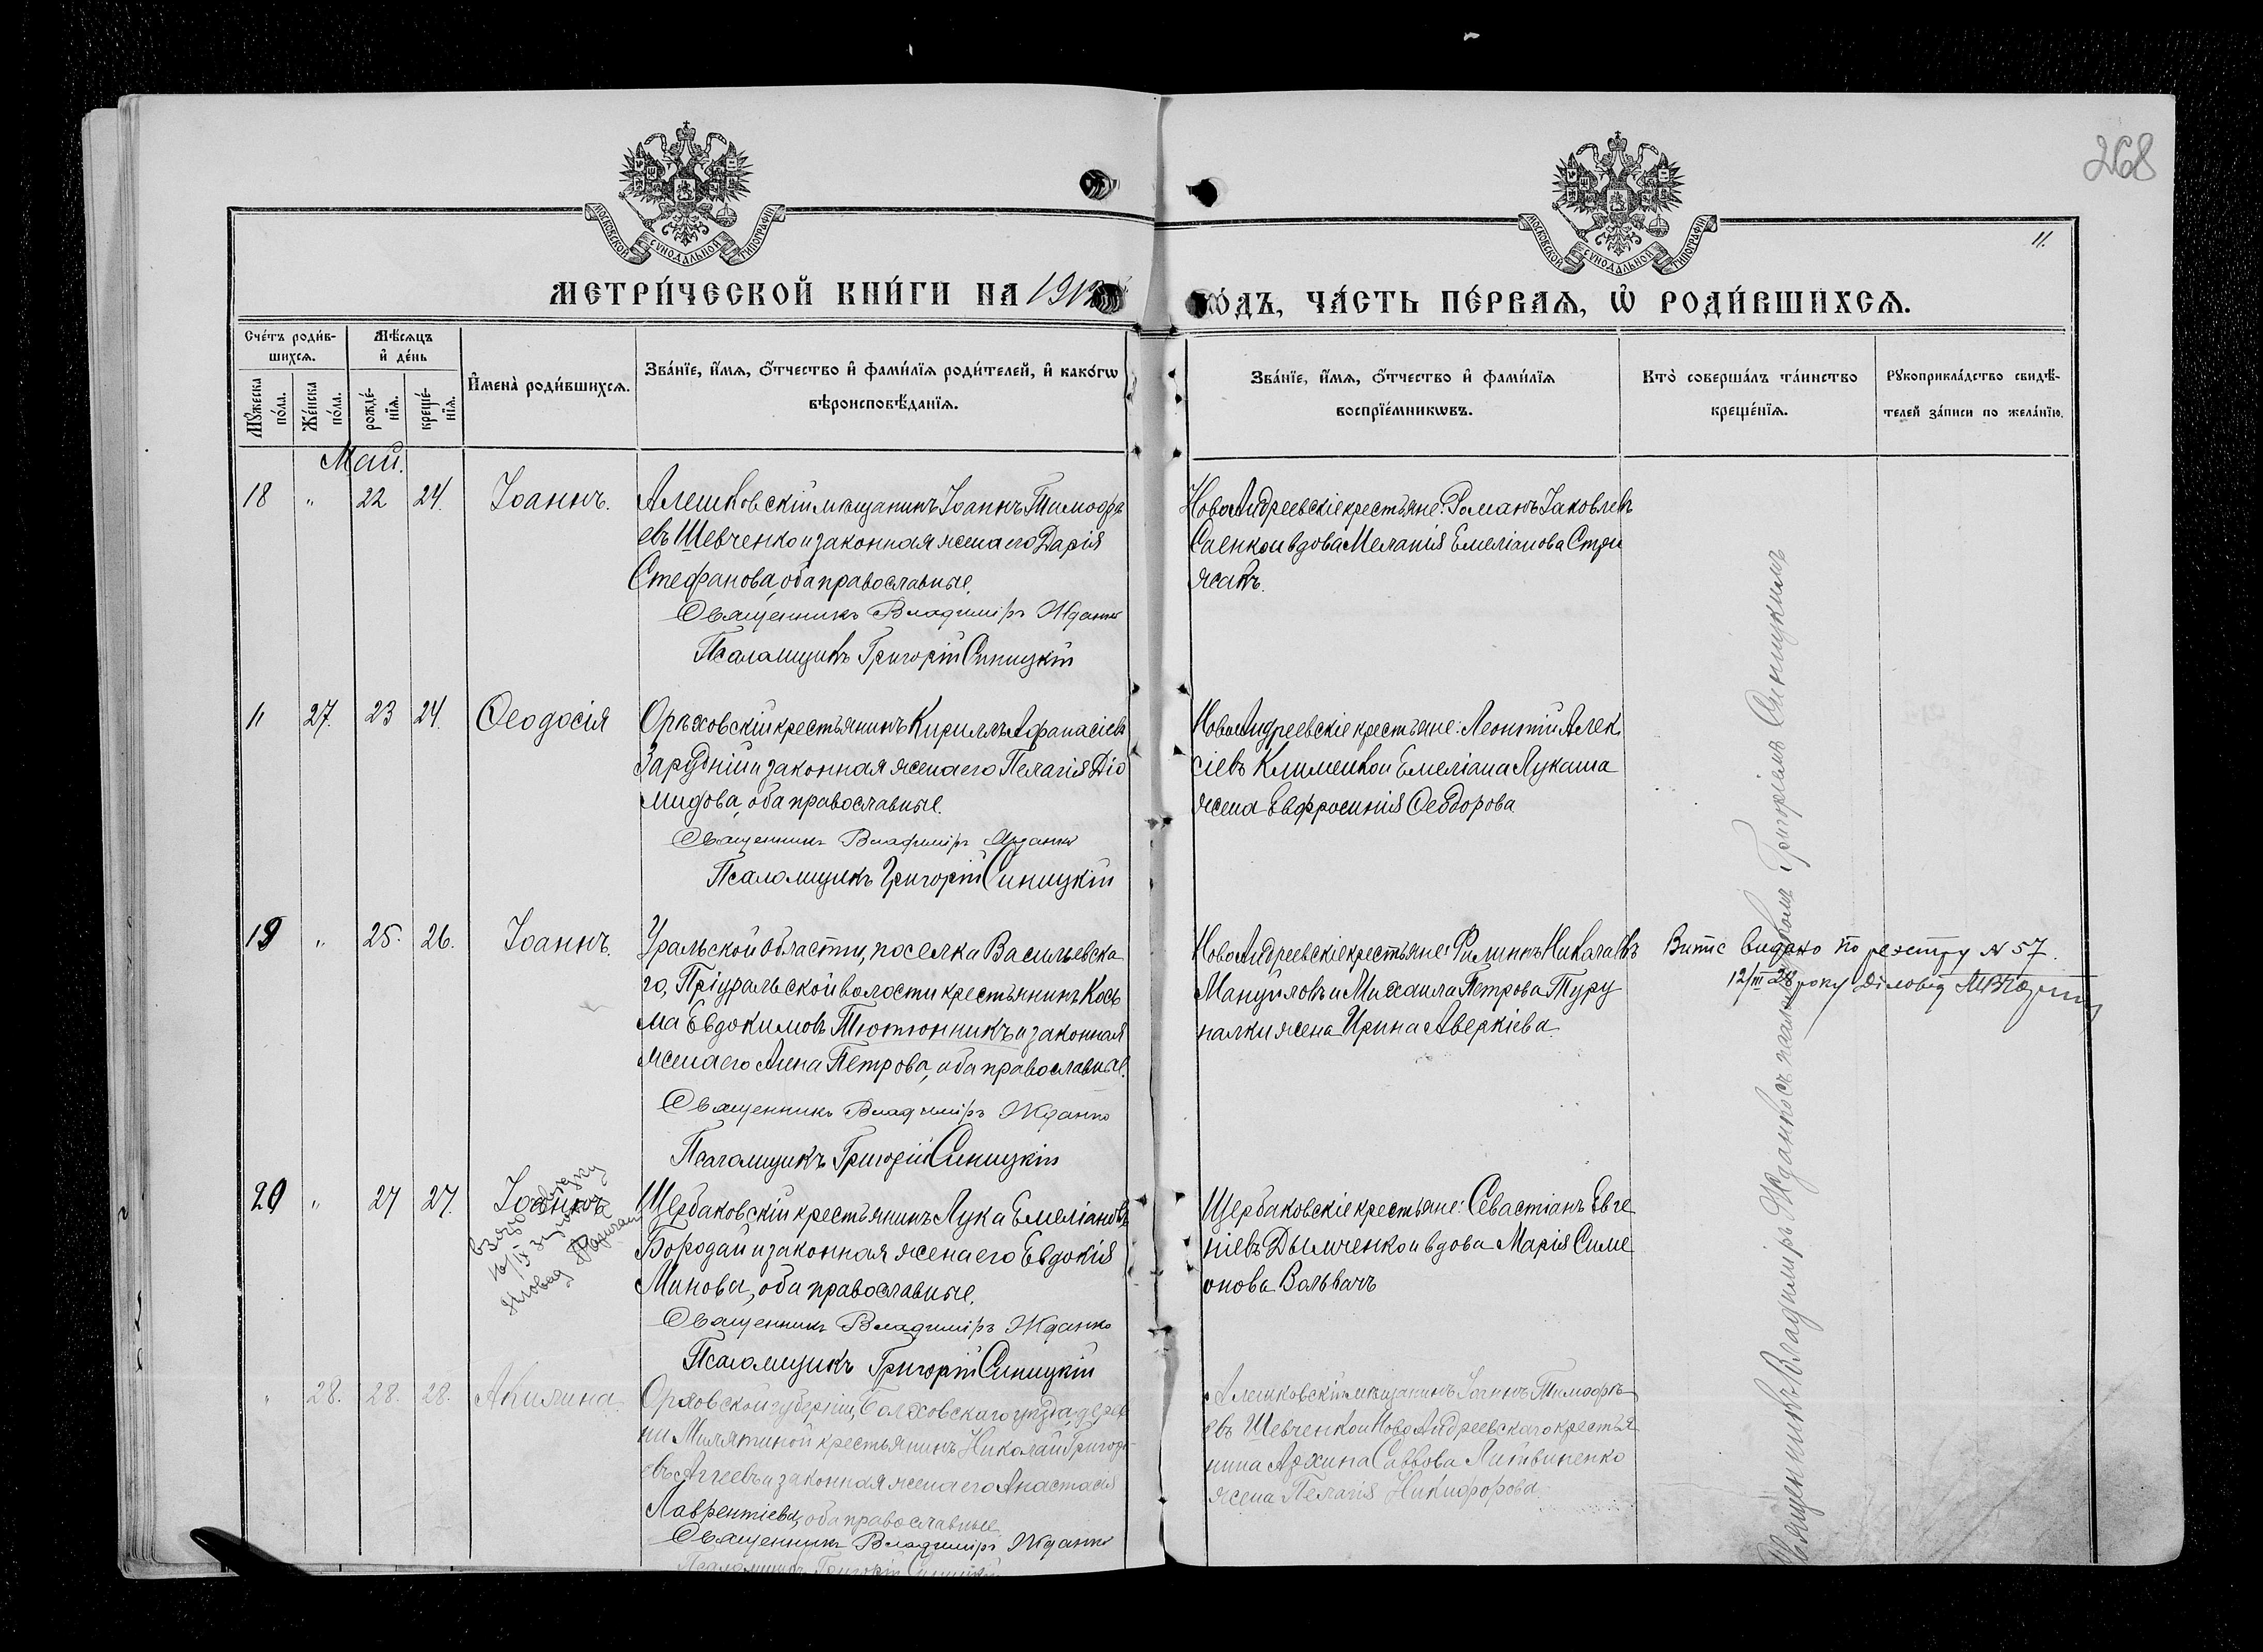 268
МОСКОВСКОЙ СѴНОДАЛЬНОЙ ТИПОГРАФІИ
МОСКОВСКОЙ СѴНОДАЛЬНОЙ ТИПОГРАФІИ
11.
МЕТРИ́ЧЕСКОЙ КНИ́ГИ НА 1912
ГО́ДЪ, ЧА́СТЬ ПЕ́РВАѦ, Ѡ҆ РОДИ́ВШИХСѦ.
Сче́тъ роди́в-
шихсѧ.
Мѣ́сѧцъ
и҆ де́нь
Мꙋ́жеска по́ла.
Же́нска по́ла.
рожде́-нїѧ.
креще́-нїѧ.
И҆мена̀ роди́вшихсѧ.
Зва́нїе, и҆́мѧ, ѻ҆́тчество и҆ фами́лїѧ роди́телей, и҆ како́гѡ
вѣроисповѣ́данїѧ.
Зва́нїе, и҆́мѧ, ѻ҆́тчество и҆ фами́лїѧ
воспрїе́мникѡвъ.
Кто̀ соверша́лъ та́инство
креще́нїѧ.
Рꙋкоприкла́дство свидѣ́-
телей за́писи по жела́нїю.
Май.
18 " 22 24. Іоаннъ. Алешковскій мѣщанинъ Іоаннъ Тимоѳѣ
евъ Шевченко и законная жена его Дарія
Стефанова, оба православные.
Священникъ Владиміръ Жданко
Псаломщикъ Григорій Синицкій
НовоАндреевскіе крестьяне: Романъ Іаковлевъ
Саенко и вдова Меланія Емеліанова Стри
жакъ.
" 27. 23 24. Ѳеодосія Орѣховскій крестьянинъ Кириллъ Аѳанасіевъ
Зарудній и законная жена его Пелагія Діо
мидова, оба православные.
Священникъ Владиміръ Жданко
Псаломщикъ Григорій Синицкій
НовоАндреевскіе крестьяне: Леонтій Алек
сіевъ Клименко и Емеліана Лукаша
жена Евфросинія Ѳеодорова
19 " 25. 26. Іоаннъ. Уральской области, поселка Васильевска
го, Пріуральской волости крестьянинъ Кось
ма Евдокимовъ Тютюнникъ и законная
жена его Анна Петрова, оба православные.
Священникъ Владиміръ Жданко
Псаломщикъ Григорій Синицкій
НовоАндреевскіе крестьяне: Филиппъ Николаевъ
Мануйловъ и Михаила Петрова Туру
палки жена Ирина Аверкіева
Витяг видано по реэстру № 57.
12/III 28 року Діловод
20 " 27 27. Іоаннъ Щербаковскій крестьянинъ Лука Емеліановъ
Бородай и законная жена его Евдокія
Минова, оба православные.
Священникъ Владиміръ Жданко
Псаломщикъ Григорій Синицкій
Щербаковскіе крестьяне: Севастіанъ Евге
ніевъ Дымченко и вдова Марія Симе
онова Вольвачъ
" 28. 28. 28. Акилина. Орловской губерніи, Болховскаго уѣзда, дерев
ни Милятиной крестьянинъ Николай Григорі
евъ Агѣевъ и законная жена его Анастасія
Лаврентіева, оба православные
Священникъ Владиміръ Жданко
Псаломщикъ Григорій Синицкій
Алешковскій мѣщанинъ Іоаннъ Тимоѳѣ
евъ Шевченко и НовоАндреевскаго крестья
нина Саввова Литвиненко
жена Пелагія Никифорова
Священникъ Владиміръ Жданко съ псаломщикомъ Григоріемъ Синицкимъ